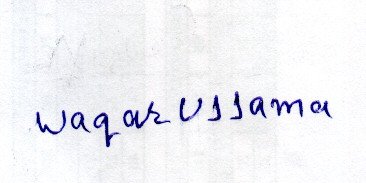 Waqar Ussama